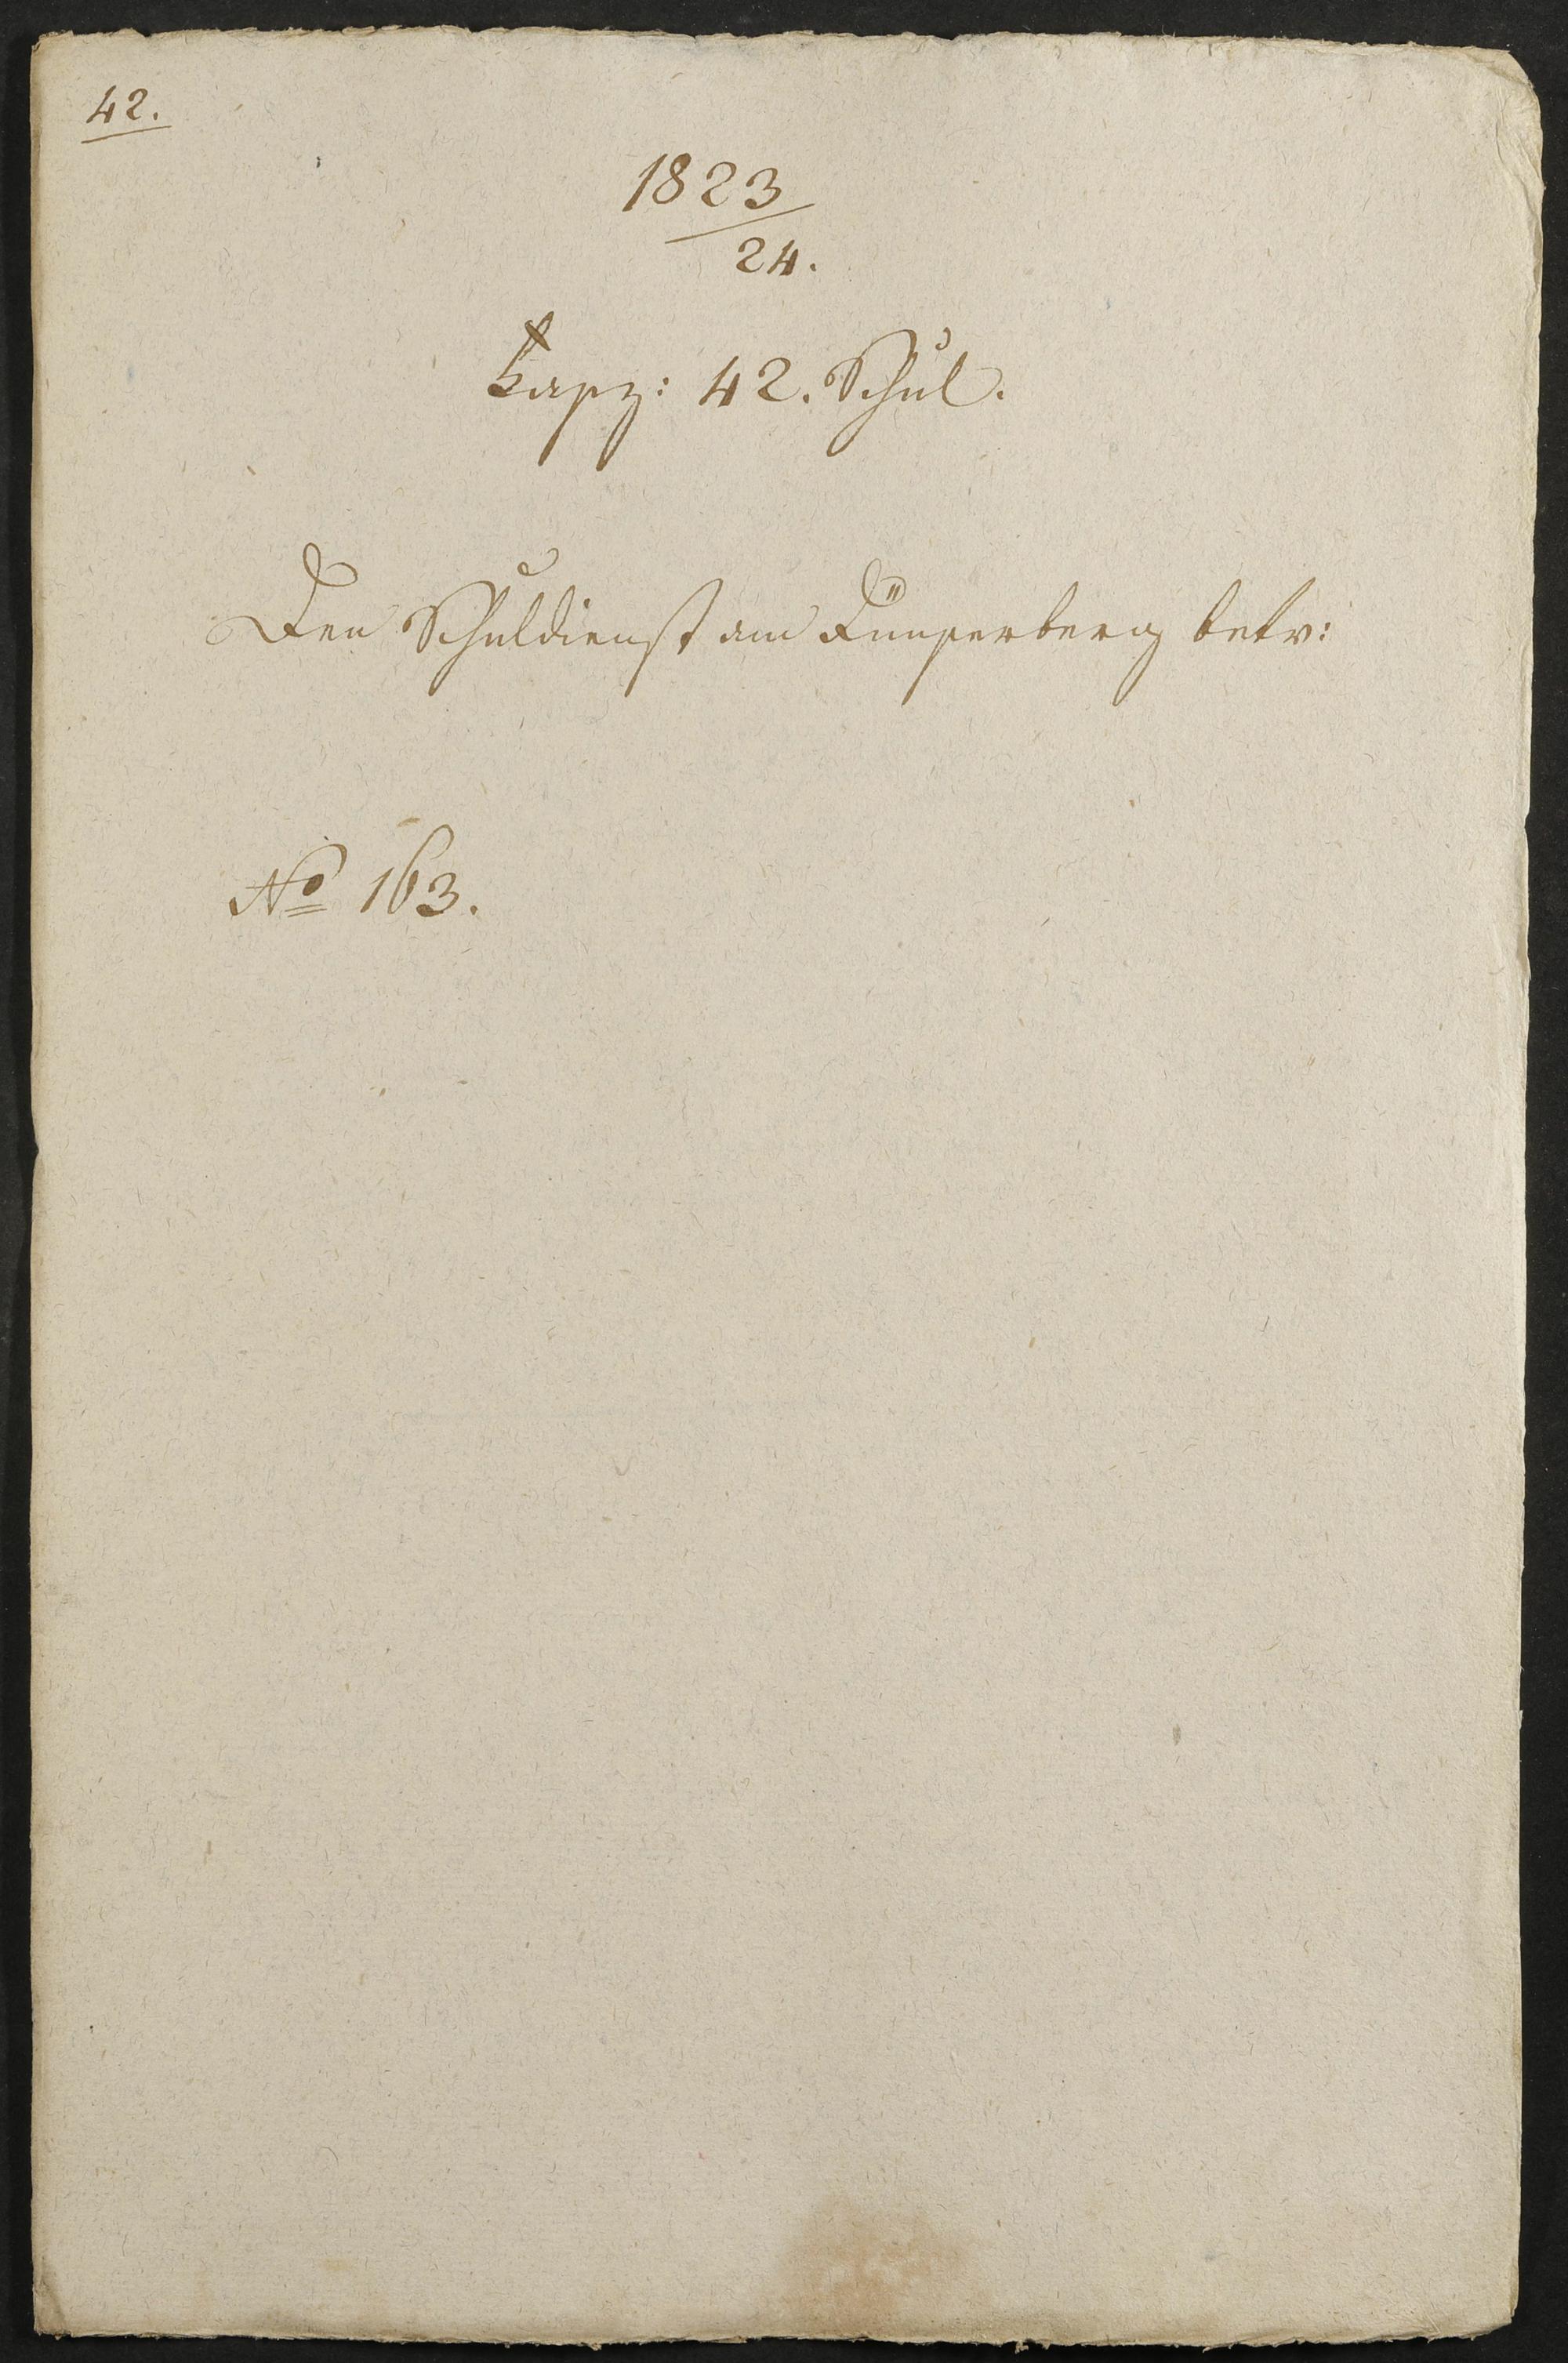 42.
1823
24.
Kapz: 42. Schul.
Den Schuldienst am Dünserberg betr:
No 163.